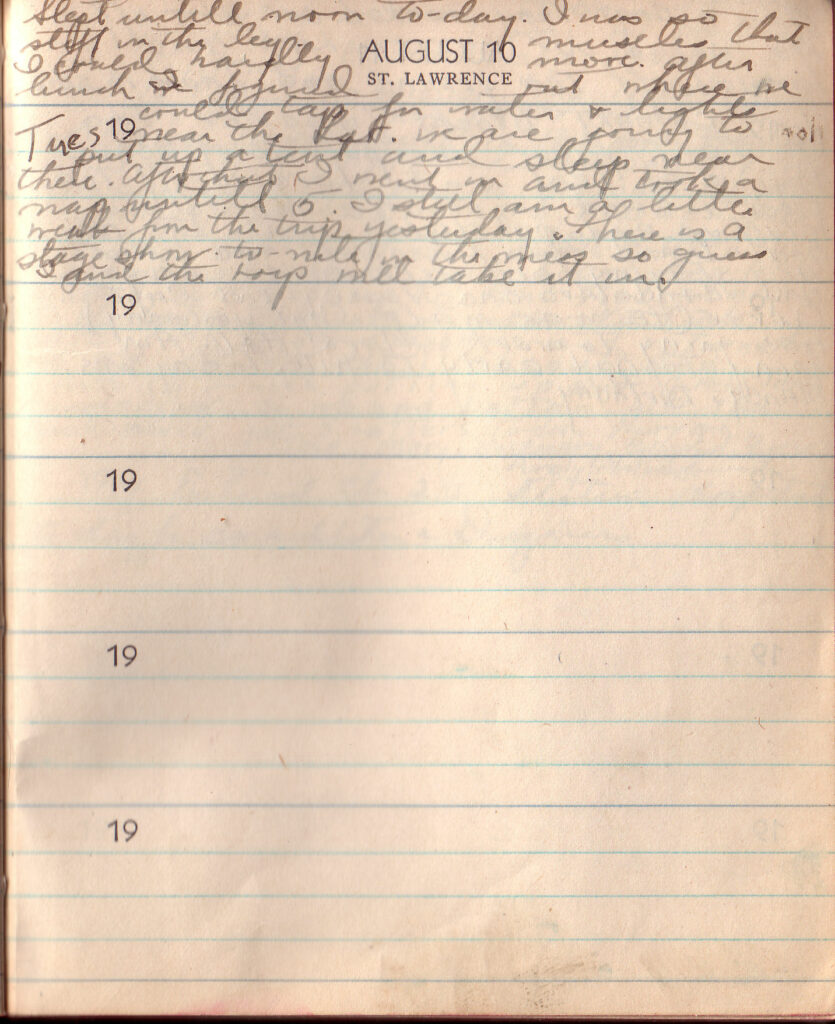 Slept untill noon to-day. I was so
stiff in the leg muscles that
AUGUST 10
I could hardly move. After
ST. LAWRENCE
lunch we found out where we
could tap for water & lights
Tues 19 near the . We are going to
put up a tent and sleep near
there. After that I went in and took a
nap untill 5. I still am a little
weak from the trip yesterday. There is a
stage show to-nite in the mess so guess
I and the boys will take it in.
19
19
19
19